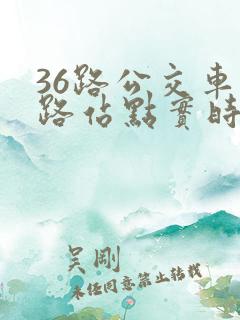 36路公交車
路佔點實時
吴剛
未经同意禁止转载